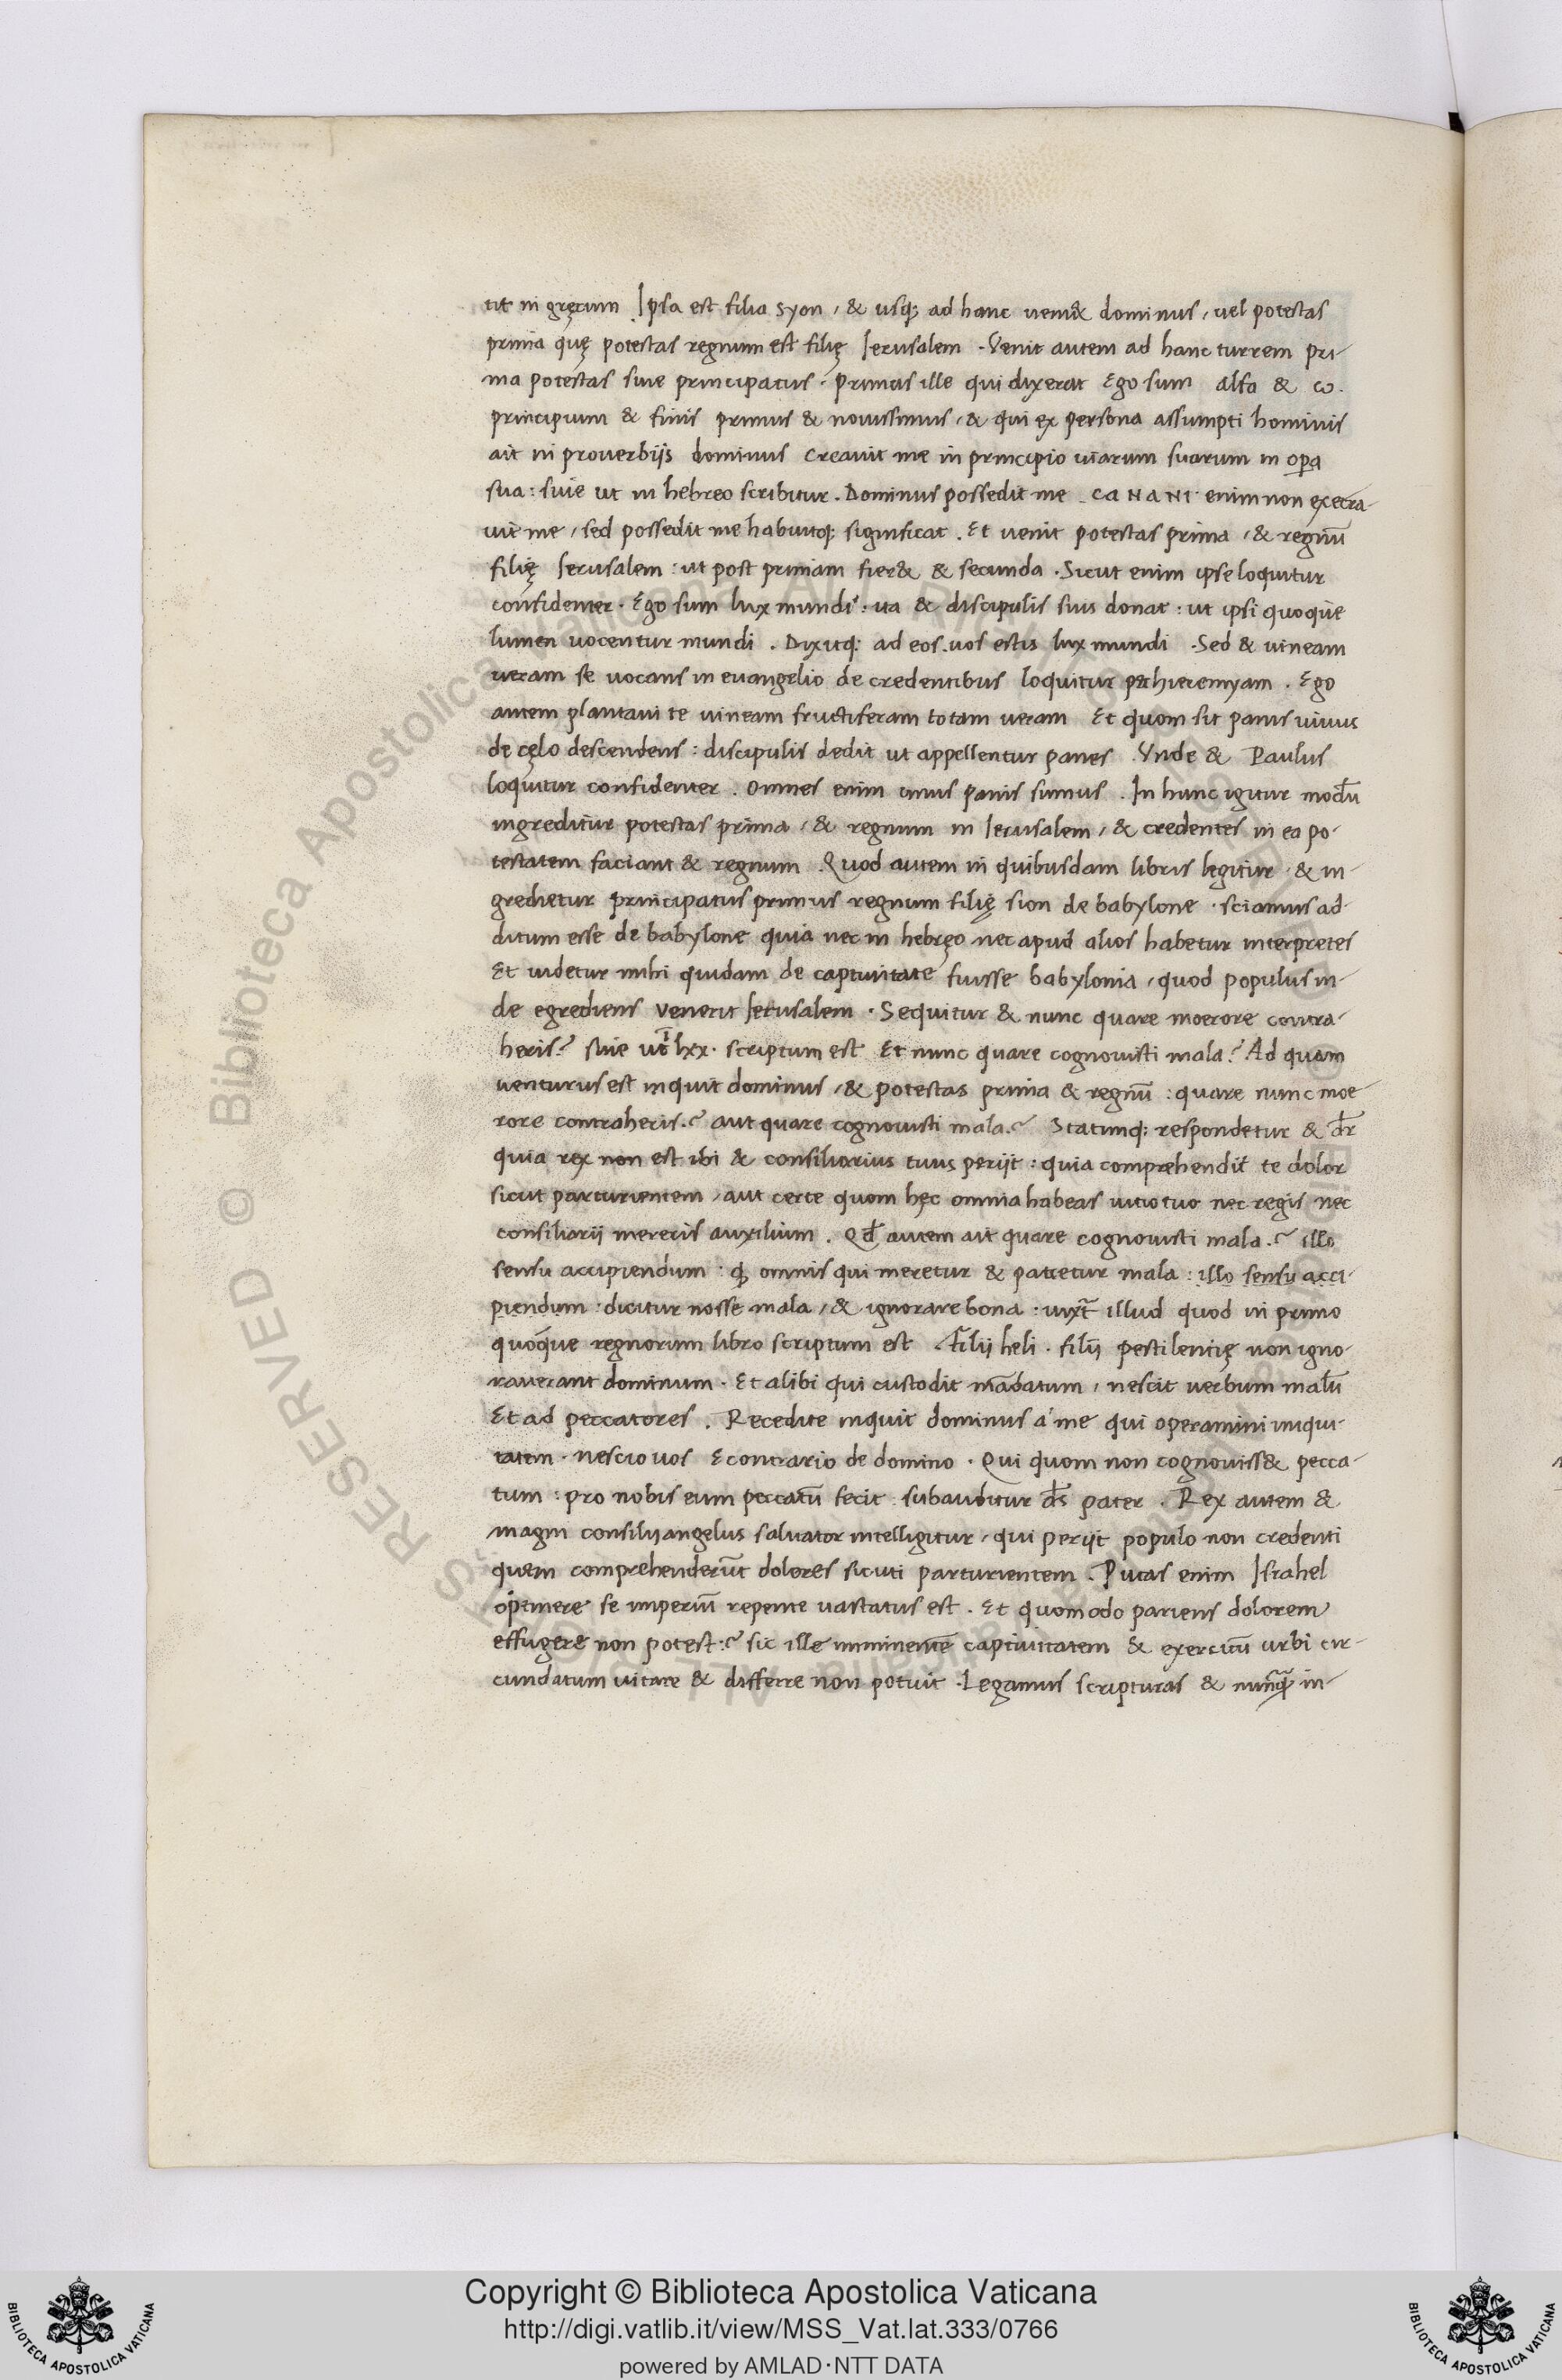 tit in gręcum Ipsa est filia syon, & usq; ad hanc veni& dominus, vel potestas
prima quę potestas regnum est filię Ierusalem. Venit autem ad hanc turrem pri-
ma potestas sive principatus: primus ille qui dixerat Ego sum alfa & ω.
principium & finis primus & novissimus, & qui ex persona assumpti hominis
ait in proverbijs dominus creavit me in principio viarum suarum in oꝑa
sua: sive ut in hebreo scribitur. Dominus possedit me CANANI enim non execra-
vit me, sed possedit me habuitq; significat. Et venit potestas prima, & regnū
filię Ierusalem: ut post primam fier& & secunda. Sicut enim ipse loquitur
confidenter. Ego sum lux mundi: ita & discipulis suis donat: ut ipsi quoque
lumen vocentur mundi. Dixitq; ad eos. vos estis lux mundi. Sed & vineam
veram se vocans in evangelio de credentibus loquitur ꝑ hieremyam. Ego
autem plantavi te vineam fructiferam totam veram Et quom sit panis vivus
de cęlo descendens: discipulis dedit ut appellentur panes. Vnde & Paulus
loquitur confidenter. Omnes enim unus panis sumus. In hunc igitur modū
ingreditur potestas prima, & regnum in Ierusalem, & credentes in ea po-
testatem faciant & regnum. Quod autem in quibusdam libris legitur. & in-
gredietur principatus primus regnum filię sion de babylone. sciamus ad-
ditum esse de babylone quia nec in hebręo nec apud alios habetur interpretes
Et videtur mihi quidam de captivitate fuisse babylonia, quod populus in-
de egrediens venerit Ierusalem. Sequitur & nunc quare moerore contra-
heris? sive ut ī lxx. scriptum est Et nunc quare cognovisti mala? Ad quam
venturus est inquit dominus, & potestas prima & regnū: quare nunc moe-
rore contraheris? aut quare cognovisti mala? Statimq; respondetur & dr̄
quia rex non est ibi & consiliarius tuus perijt: quia comprehendit te dolor
sicut parturientem, aut certe quom hęc omnia habeas vitio tuo nec regis nec
consiliarij mereris auxilium. Qd̄ autem ait quare cognovisti mala? illo
sensu accipiendum: q; omnis qui meretur & patietur mala: illo sensu acci-
piendum: dicitur nosse mala, & ignorare bona: iuxt̄ illud quod in primo
quoque regnorum libro scriptum est. Filij heli. filij pestilentię non igno-
raverant dominum. Et alibi qui custodit mādatum, nescit verbum malū
Et ad peccatores. Recedite inquit dominus a me qui operamini iniqui-
tatem. nescio vos Econtrario de domino. Qui quom non cogноviss& pecca-
tum: pro nobis eum peccatū fecit: subauditur d̄s pater. Rex autem &
magni consilij angelus salvator intelligitur, qui perijt populo non credenti
quem comprehenderūt dolores sicuti parturientem. Putas enim Israhel
optinere se imperiū repente vastatus est. Et quomodo pariens dolorem
effugere non potest? sic ille imminentē captivitatem & exercitū urbi cir-
cundatum vitare & differre non potuit. Legamus scripturas & nunq̄ in-
Copyright © Biblioteca Apostolica Vaticana
http://digi.vatlib.it/view/MSS_Vat.lat.333/0766
powered by AMLAD·NTT DATA